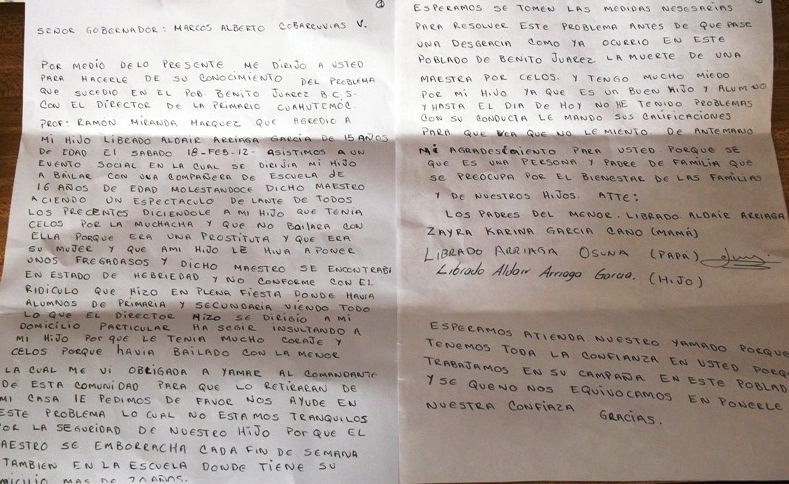 SEÑOR GOBERNADOR: MARCOS ALBERTO COBARRUVIAS V.
POR MEDIO DE LO PRESENTE ME DIRIJO A USTED
PARA HACERLE DE SU CONOCIMIENTO DEL PROBLEMA
QUE SUCEDIO EN EL POB. BENITO JUAREZ B.C.S.
CON EL DIRECTOR DE LA PRIMARIO CUAHUTEMOC.
PROF: RAMÓN MIRANDA MARQUEZ QUE AGREDIO A
MI HIJO LIBRADO ALDAIR ARRIAGA GARCIA DE 15 AÑOS
DE EDAD EL SABADO 18-FEB-12- ASISTIMOS A UN
EVENTO SOCIAL EN LA CUAL SE DIRIJIA MI HIJO
A BAILAR CON UNA COMPAÑERA DE ESCUELA DE
16 AÑOS DE EDAD MOLESTANDOCE DICHO MAESTRO
ACIENDO UN ESPECTACULO DE LANTE DE TODOS
LOS PRECENTES DICIENDOLE A MI HIJO QUE TENIA
CELOS POR LA MUCHACHA Y QUE NO BAILARA CON
ELLA PORQUE ERA UNA PROSTITUTA Y QUE ERA
SU MUJER Y QUE AMI HIJO LE HIVA A PONER
UNOS FREGADASOS Y DICHO MAESTRO SE ENCONTRABA
EN ESTADO DE HEBRIEDAD Y NO CONFORME CON EL
RIDÍCULO QUE HIZO EN PLENA FIESTA DONDE HAVIA
ALUMNOS DE PRIMARIA Y SECUNDARIA VIENDO TODO
LO QUE EL DIRECTOR HIZO SE DIRIGIO A MI
DOMICILIO PARTICULAR HA SEGIR INSULTANDO A
MI HIJO POR QUE LE TENIA MUCHO CORAJE Y
CELOS PORQUE HAVIA BAILADO CON LA MENOR
LA CUAL ME VI OBRIGADA A YAMAR AL COMANDANTE
DE ESTA COMUNIDAD PARA QUE LO RETIRARAN DE
MI CASA LE PEDIMOS DE FAVOR NOS AYUDE EN
ESTE PROBLEMA LO CUAL NO ESTAMOS TRANQUILOS
POR LA SEGURIDAD DE NUESTRO HIJO POR QUE EL
MAESTRO SE EMBORRACHA CADA FIN DE SEMANA
TAMBIEN EN LA ESCUELA DONDE TIENE SU
MAS DE 20 AÑOS.
ESPERAMOS SE TOMEN LAS MEDIDAS NESESARIAS
PARA RESOLVER ESTE PROBLEMA ANTES DE QUE PASE
UNA DESGRACIA COMO YA OCURRIO EN ESTE
POBLADO DE BENITO JUAREZ LA MUERTE DE UNA
MAESTRA POR CELOS. Y TENGO MUCHO MIEDO
POR MI HIJO YA QUE ES UN BUEN HIJO Y ALUMNO
Y HASTA EL DIA DE HOY NO HE TENIDO PROBLEMAS
CON SU CONDUCTA LE MANDO SUS CALIFICACIONES
PARA QUE VEA QUE NO LE MIENTO DE ANTEMANO
MI AGRADESCIMIENTO PARA USTED PORQUE SE
QUE ES UNA PERSONA Y PADRE DE FAMILIA QUE
SE PREOCUPA POR EL BIENESTAR DE LAS FAMILIAS
Y DE NUESTROS HIJOS. ATTE:
LOS PADRES DEL MENOR. LIBRADO ALDAIR ARRIAGA
ZAYRA KARINA GARCIA CANO (MAMÁ)
LIBRADO ARRIAGA OSUNA (PAPÁ)
Librado Aldair Arriaga Garcia. (HIJO)
ESPERAMOS ATIENDA NUESTRO YAMADO PORQUE
TENEMOS TODA LA CONFIANZA EN USTED PORQ
TRABAJAMOS EN SU CAMPAÑA EN ESTE POBLAD
Y SE QUE NO NOS EQUIVOCAMOS EN PONERLE
NUESTRA CONFIAZA GRACIAS.